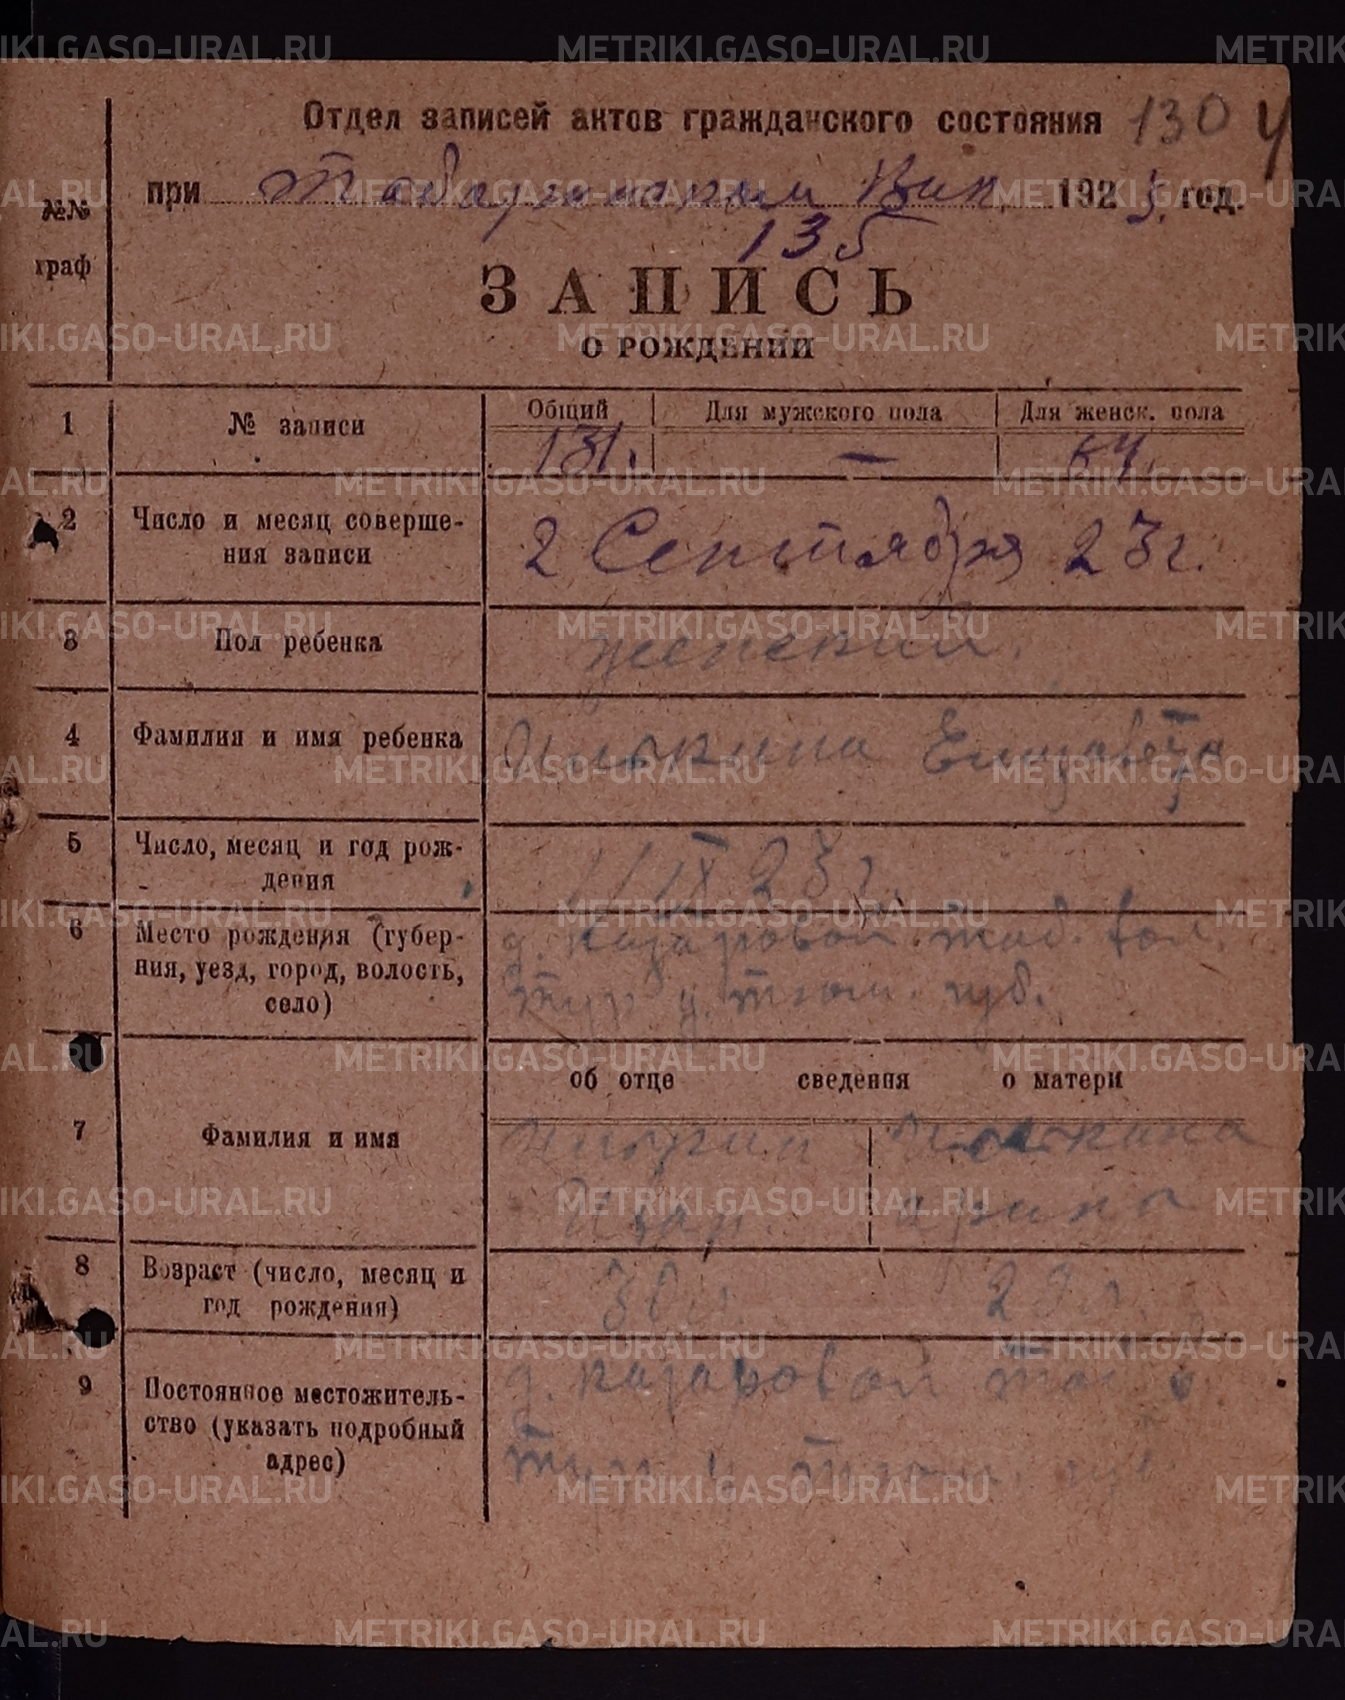 METRIKI.GASO-URAL.RU
Отдел записей актов гражданского состояния 130
при Табаринским Вик, 1923 год.
135
№№ граф
ЗАПИСЬ
О РОЖДЕНИИ
1 № записи Общий Для мужского пола Для женск. пола
131. —
2 Число и месяц соверше-
ния записи 2 Сентября 23 г.
3 Пол ребенка женский.
4 Фамилия и имя ребенка Елизавета
5 Число, месяц и год рож-
дения IX 23 г.
6 Место рождения (губер-
ния, уезд, город, волость,
село)
д. Назаровой Таб. вол.
Тур у. Тюм. губ.
об отце сведения о матери
7 Фамилия и имя
8 Возраст (число, месяц и
год рождения) 30
9 Постоянное местожитель-
ство (указать подробный
адрес)
д. Назаровой
Тур у. Тюм. губ.